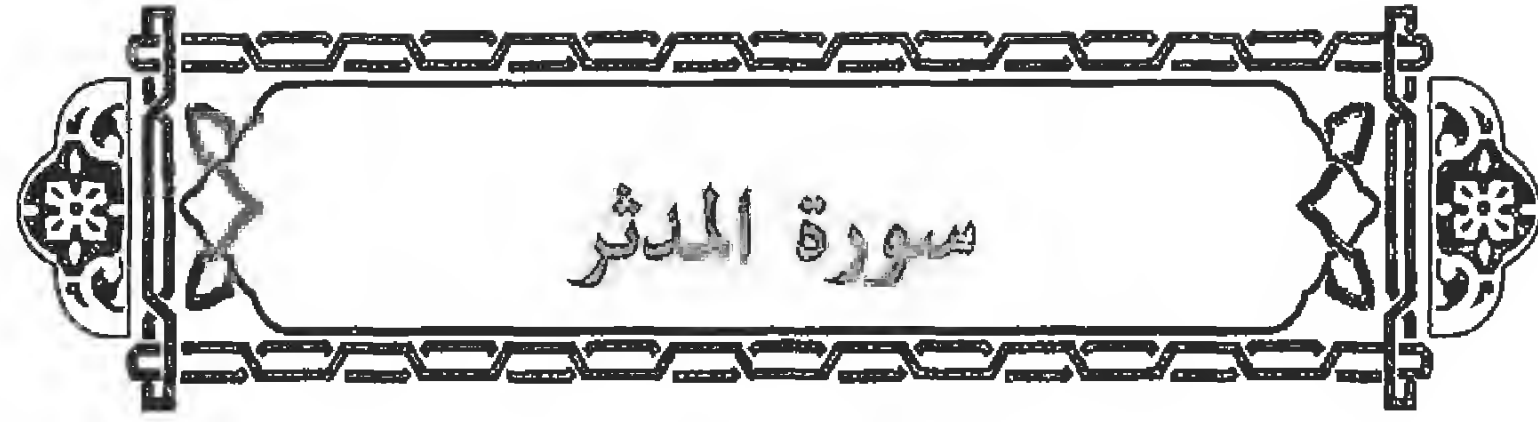 سورة المدثر